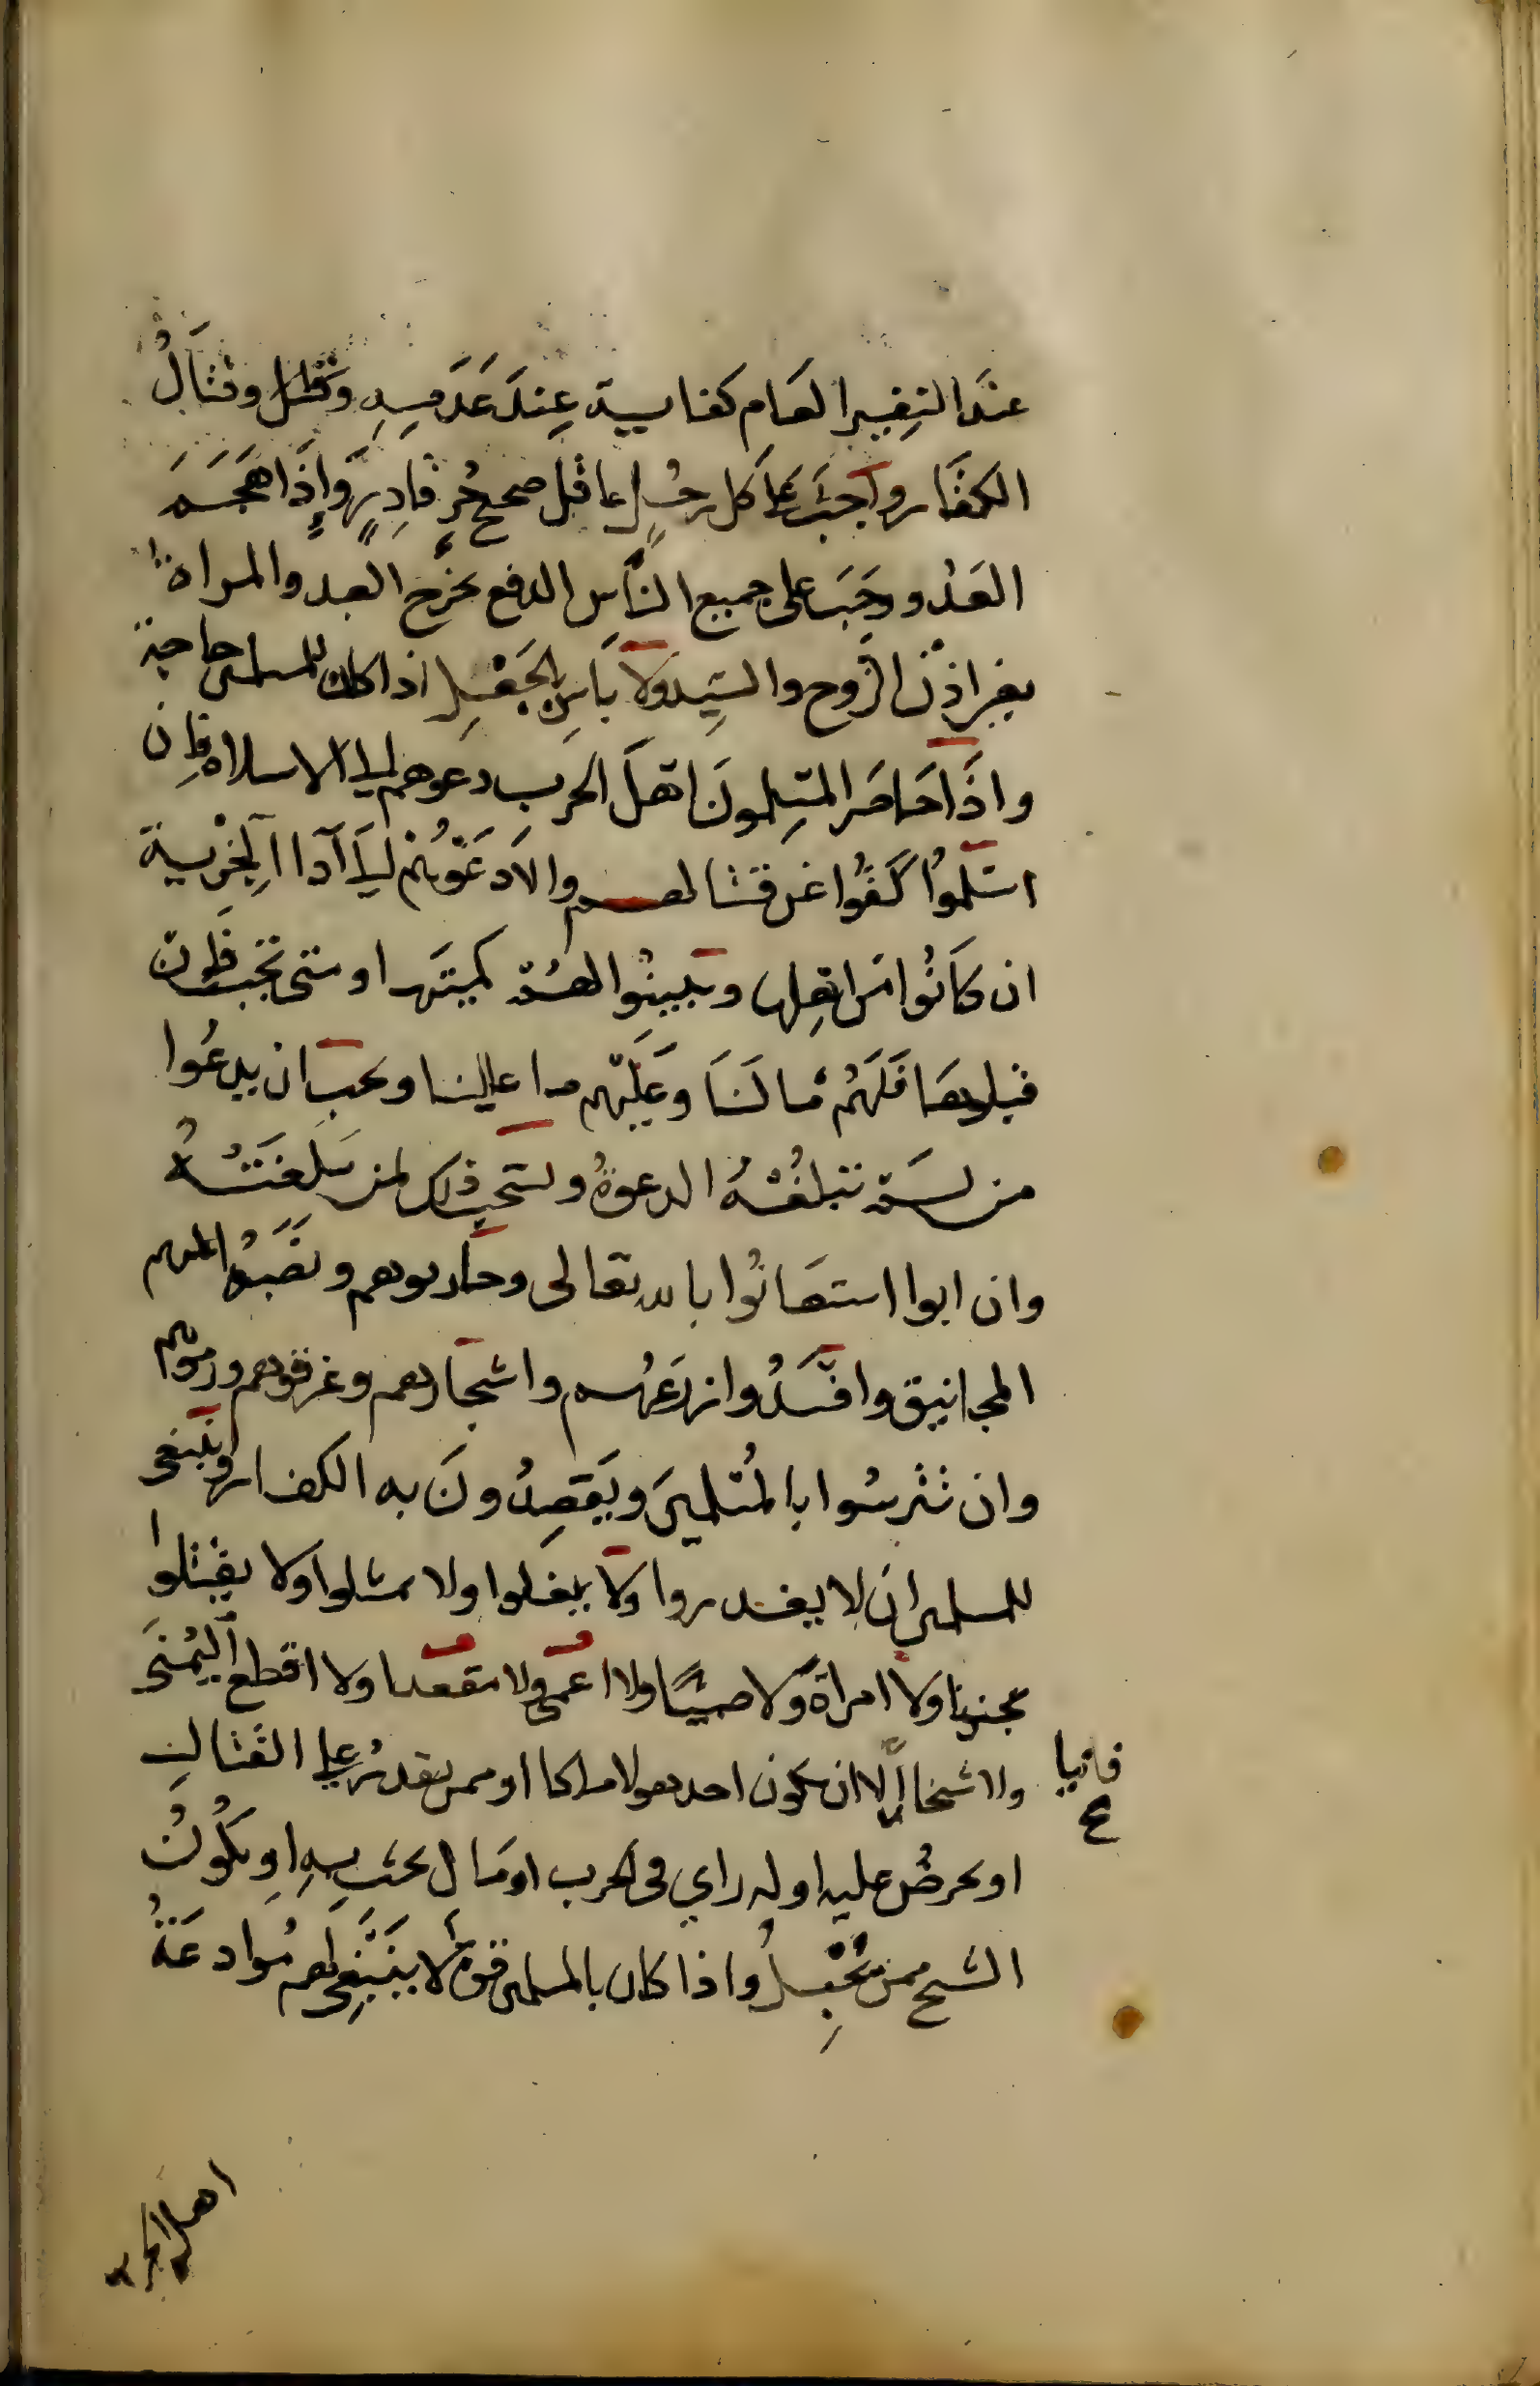 عند النفير العام كفاية عند عدمه وقتال
الكفار واجب على كل رجل عاقل صحيح حر قادر واذا هجم
العدو وجب على جميع الناس الدفع تخرج العبد والمراة
بغير اذن الزوج والسيد ولا باس بالجعل اذا كان للمسلمين حاجة
واذا حاصر المسلمون اهل الحرب دعوهم الى الاسلام فان
اسلموا كفوا عن قتالهم والا دعوهم الى اداء الجزية
ان كانوا من اهلها ويبينوا لهم كميتها ومتى تجب فان
قبلوها فلهم ما لنا وعليهم ما علينا ويجب ان يدعوا
من لم تبلغه الدعوة ويستحب ذلك لمن بلغته
وان ابوا استعانوا بالله تعالى وحاربوهم ونصبوا عليهم
المجانيق وافسدوا زرعهم واشجارهم وغرقوهم ورموهم
وان تترسوا بالمسلمين ويقصدون به الكفار وينبغي
للمسلمين ان لا يغدروا ولا يغلوا ولا يمثلوا ولا يقتلوا
مجنونا ولا امراة ولا صبيا ولا اعمى ولا مقعدا ولا اقطع اليمنى
ولا شيخا الا ان يكون احد هولا ملكا او ممن يقدر على القتال
او يحرض عليه او له راي في الحرب او مال يحث به او يكون
الشيخ ممن يحتل واذا كان بالمسلمين قوة لا ينبغي لهم موادعة
فانيا
اهل الحرب